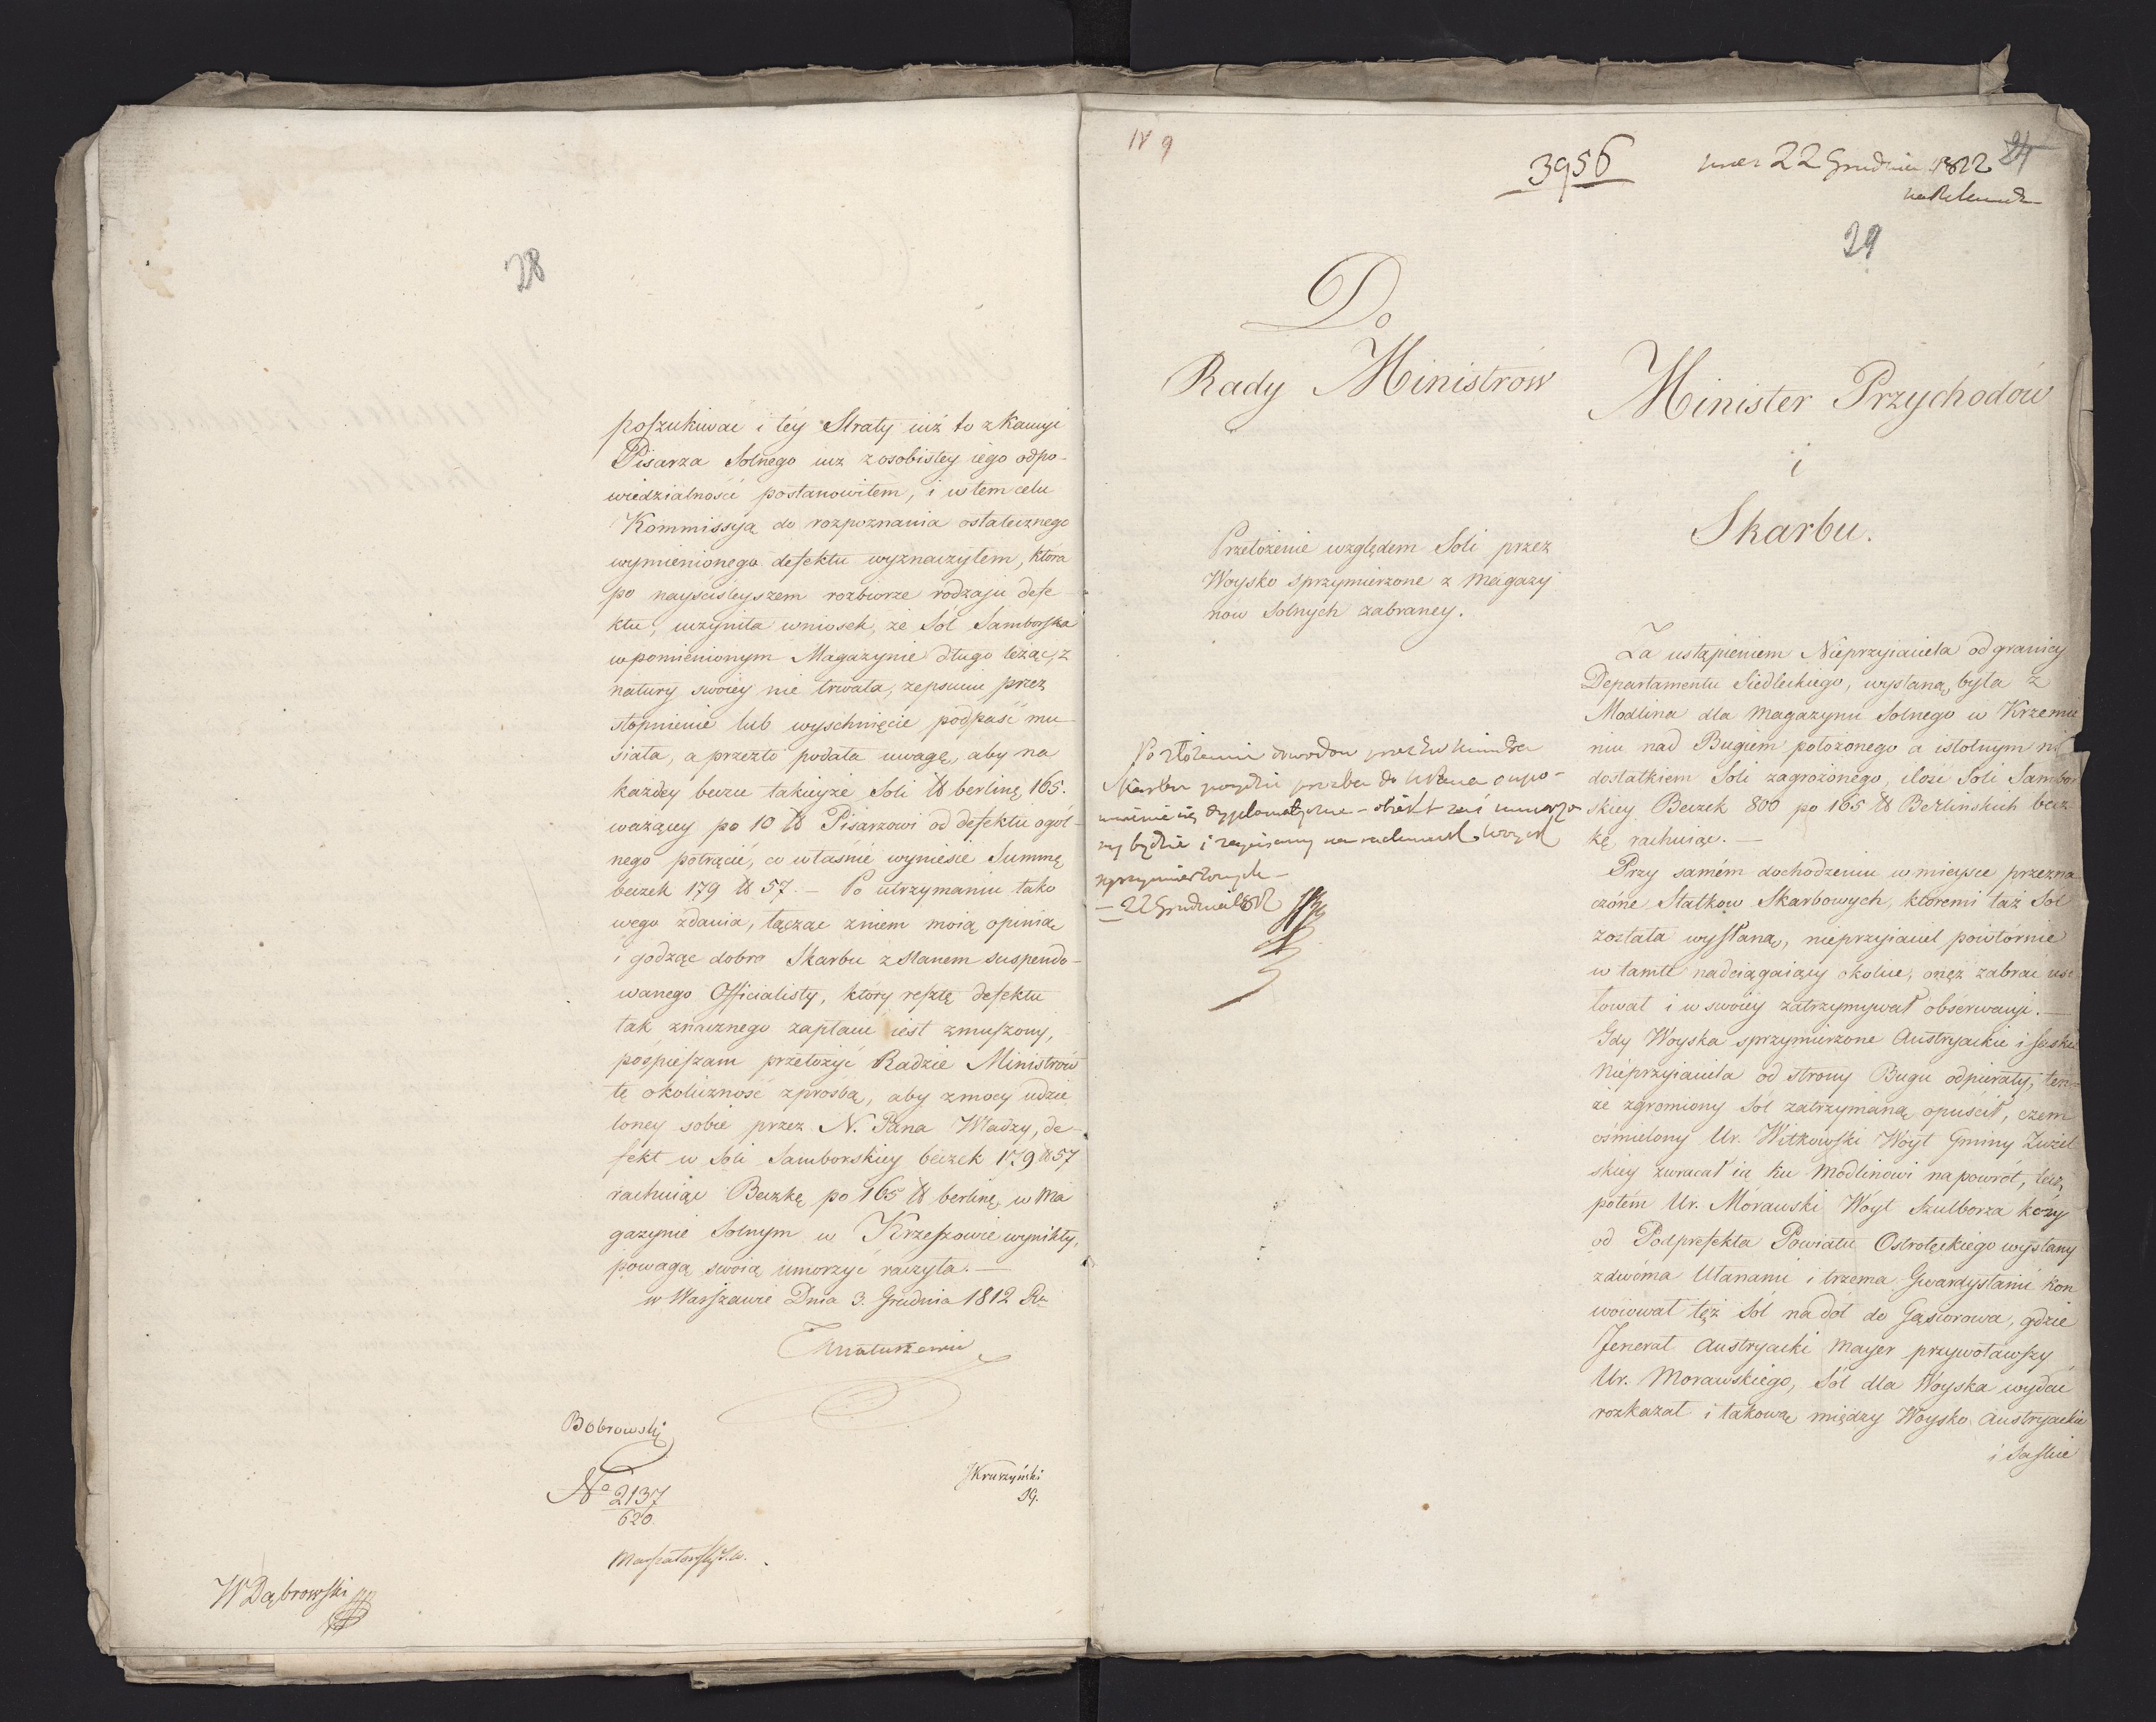 28
poſzukiwać i tey Straty iuż to z Kaucyi
Pisarza Solnego iuż z osobistey iego odpo-
wiedzialności postanowiłem, i w tem celu
Kommissyą do rozpoznania ostatecznego
wymienionego defektu wyznaczyłem, która
po nayściśleyszem rozbiorze rodzaju defe
ktu, uczyniła wniosek, że Sol Samborſka
w pomienionym Magazynie długo leżąc, z
natury swoiey nie trwała, zepsuciu przez
stopnienie lub wyschnięcie podpaść mu
siała, a przeto podała uwagę, aby na
każdey beczce takieyże Soli ℔ berliń. 165.
ważącey po 10 ℔ Pisarzowi od defektu ogól-
nego potrącić, co właśnie wyniesie Summę
beczek 179 ℔ 57. — Po utrzymaniu tako
wego zdania, łącząc z niem moią opinią
i godząc dobro Skarbu z stanem suspendo-
wanego Officialisty, który reſztę defektu
tak znacznego zapłacić iest zmuſzony,
pośpieſzam przełożyć Radzie Ministrów
tę okoliczność z prośbą, aby z mocy udzie
loney sobie przez N. Pana Władzy, de-
fekt w Soli Samborskiey beczek 179 ℔ 57
rachuiąc Beczkę po 165 ℔ berliń. w Ma
gazynie Solnym w Krzeſzowie wynikły,
powagą swoią umorzyć raczyła. —
w Warſzawie Dnia 3. Grudnia 1812 Ru
Matuszewic
Bobrowski
No 2137
620.
JKruszyński
SG.
WDąbrowſki
IV 9
3956
22 Grudnia 1812
24
29
Do
Rady Ministrów
Minister Przychodów
i
Skarbu.
Przełożenie względem Soli przez
Woysko sprzymierzone z Magazy
nów Solnych zabraney.
Po złożeniu dowodów przez Ministra
Skarbu poydzie prozba do o upo-
mnienie się dyplomatyczne – defekt zaś umorzo
ny będzie i zapisany na rachunek woysk
sprzymierzonych –
— 22 Grudnia 1812
Za ustąpieniem Nieprzyiaciela od granicy
Departamentu Siedleckiego, wysłaną była z
Modlina dla Magazynu Solnego w Krzemie
niu nad Bugiem położonego a istotnym nie
dostatkiem Soli zagrożonego, ilość Soli Sambor
skiey Beczek 800 po 165 ℔ Berlińskich becz
kę rachuiąc. —
Przy samém dochodzeniu w mieysce przezna
czóne Statkow Skarbowych, któremi taż Sol
została wyſłaną, nieprzyiaciel powtórnie
w tamte nadciągaiący okolice, onęż zabrać usi
łował i w swoiey zatrzymywał obserwacyi. —
Gdy Woyska sprzymierzone Austryackie i saskie
Nieprzyiaciela od strony Bugu odpierały, ten-
że zgromiony Sol zatrzymaną opuścił, czem
ośmielony Ur. Witkowſki Woyt Gminy Zuzel
skiey zwracał ią ku Modlinowi na powrot, lecz
potém Ur. Morawski Wóyt Szulborza kozy
od Podprefekta Powiatu Ostrołęckiego wysłany
z dwóma Ułanami i trzema Gwardystami kon
woiował tęż Sól na dół do Gąsiorowa, gdzie
Jenerał Austryacki Mayer przywoławſzy
Ur. Morawskiego, Sól dla Woyska wydać
rozkazał i takową między Woysko Austryackie
i Saſkie